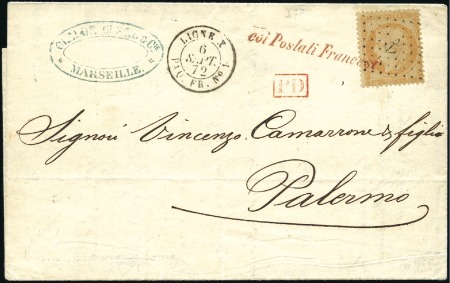 MARSEILLE
LIGNE X
6
SEPT.
72
PAQ. FR. No 1
coi Postali Francesi
PD
Signori Vincenzo Camarrone & figlio
Palermo